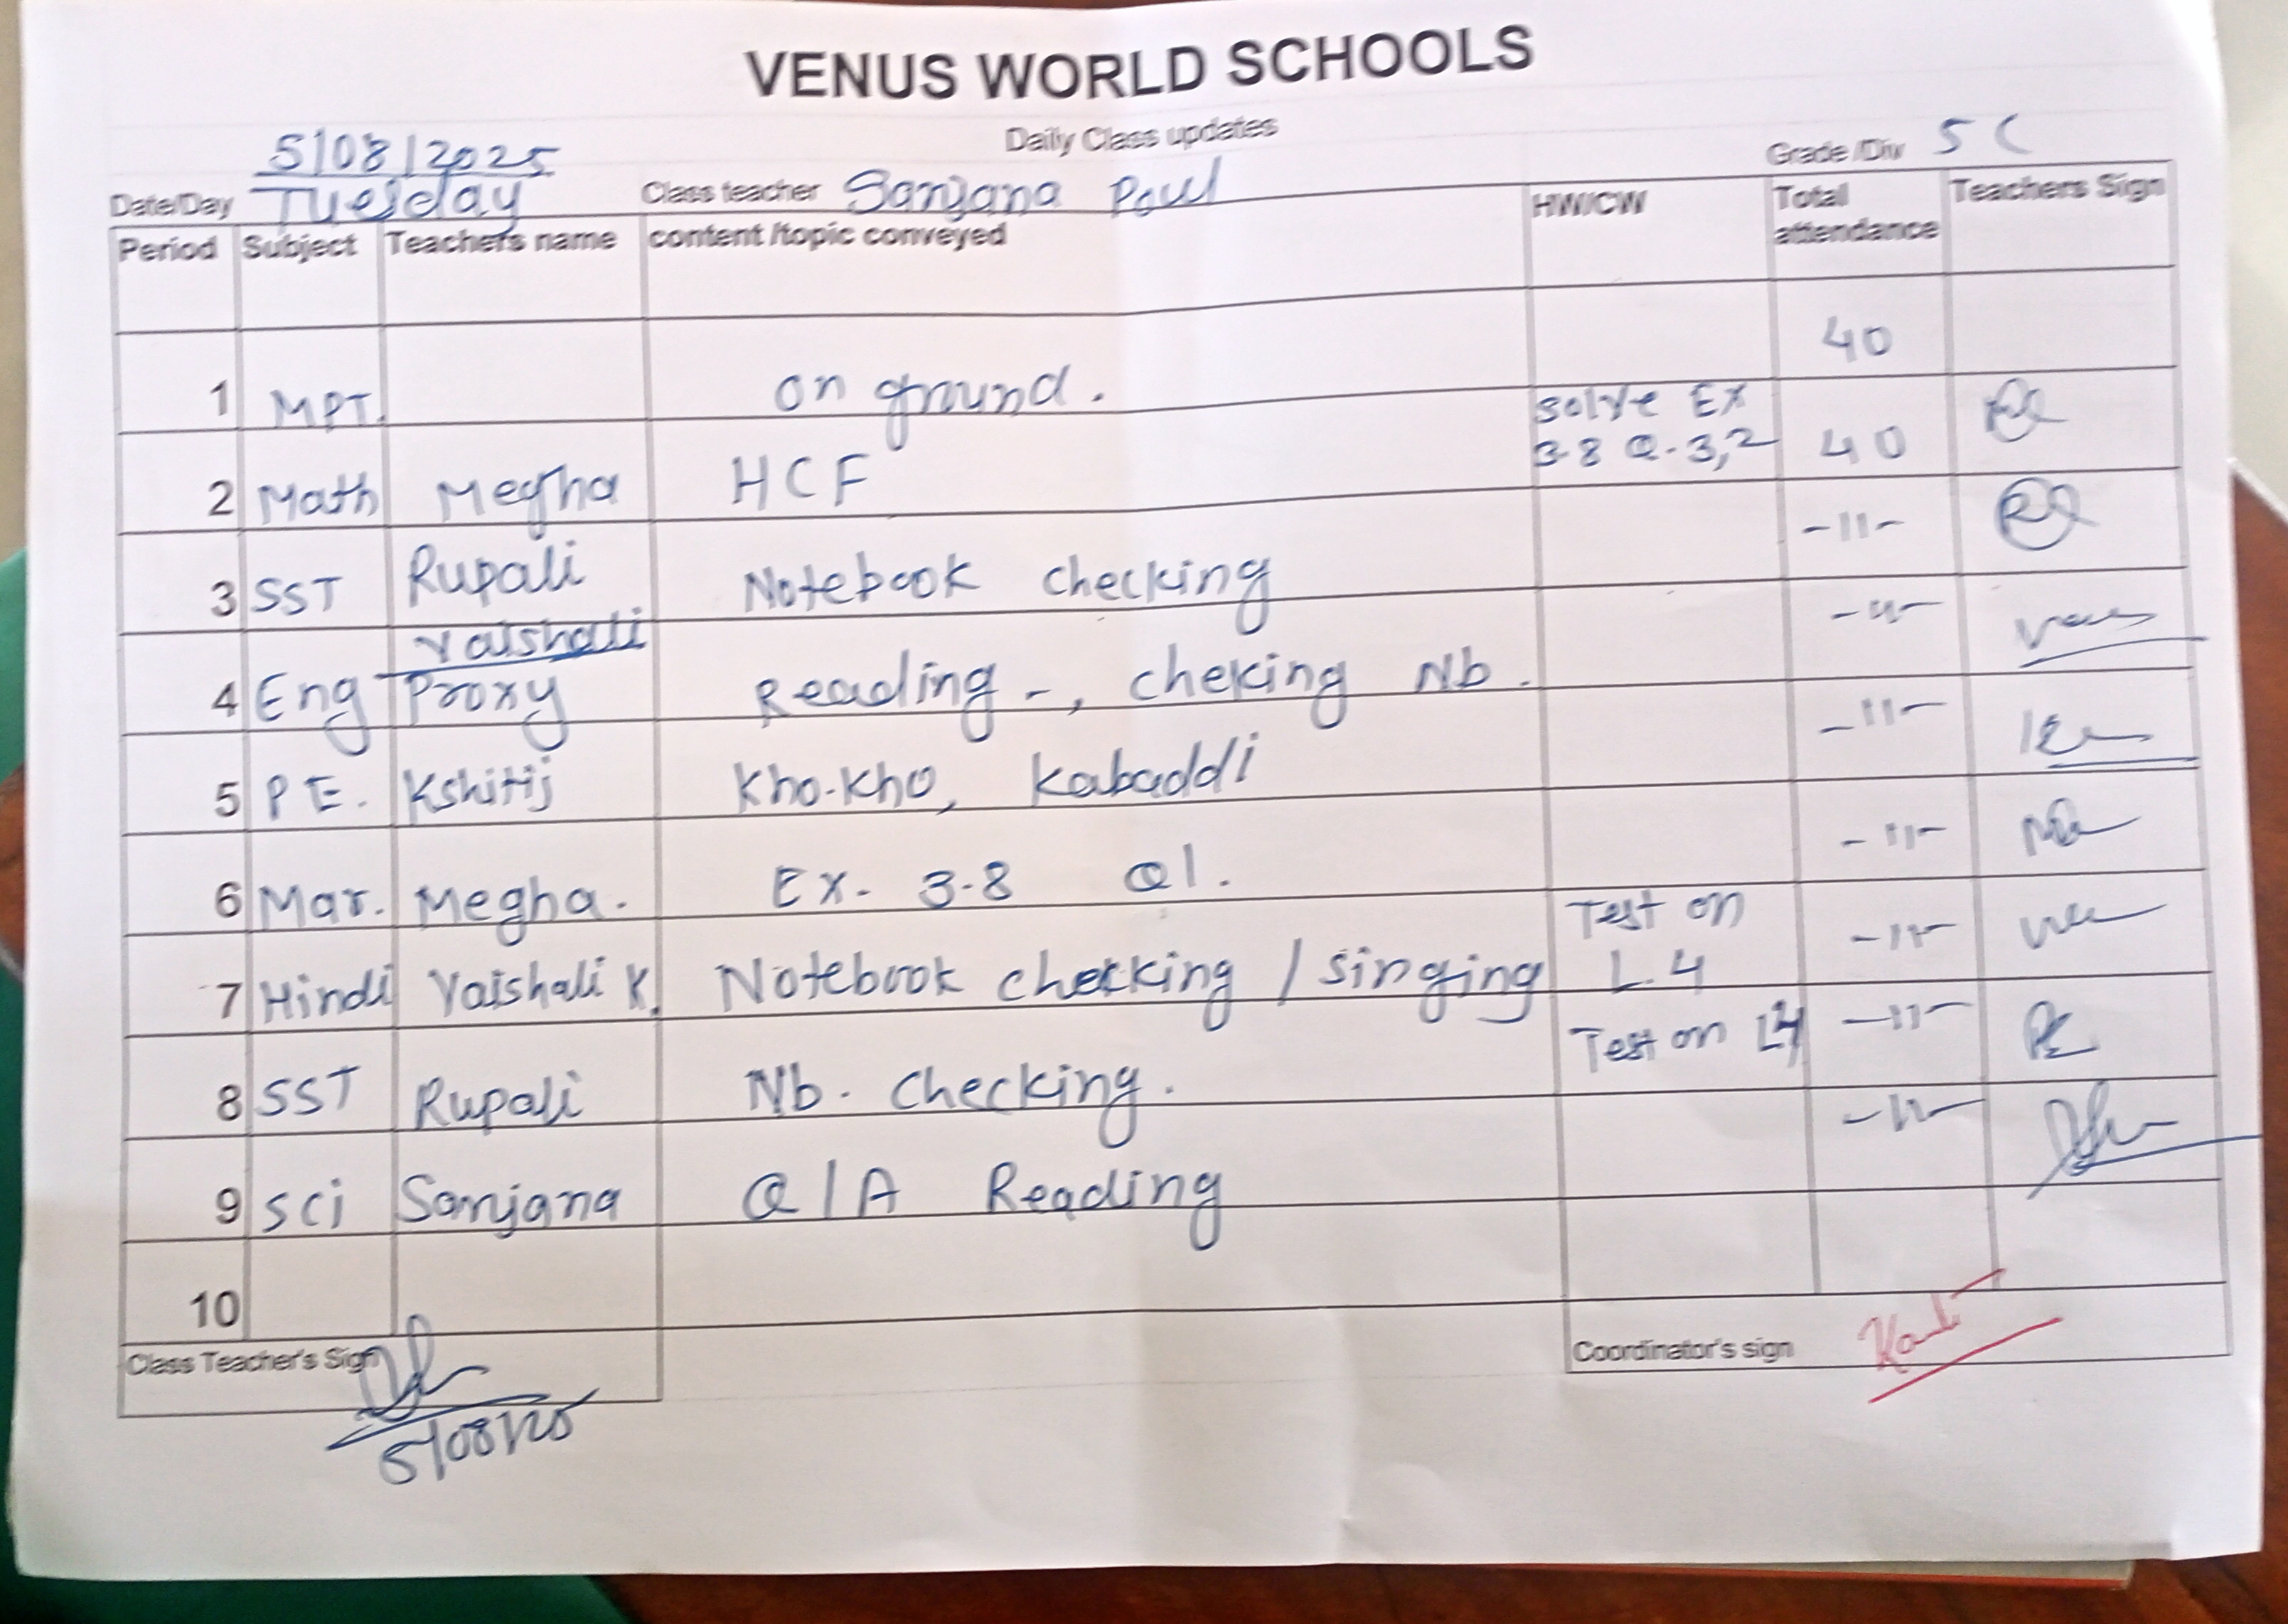 VENUS WORLD SCHOOLS
Daily Class updates
5/08/2025
Date/Day Tuesday Class teacher Sanjana Paul Grade /Div 5 C
Period Subject Teachers name content /topic conveyed HW/CW Total attendance Teachers Sign
1 MPT. on ground. 40
2 Math Megha HCF Solve Ex 3.8 Q.3,2 40
3 SST Rupali Notebook checking -11-
4 Eng Vaishali Proxy Reading -, cheking Nb. -11-
5 P E. Kshitij Kho-Kho, Kabaddi -11-
6 Mar. Megha. Ex- 3.8 Q1. -11-
7 Hindi Vaishali K. Notebook checking / singing Test on L.4 -11-
8 SST Rupali Nb. checking. Test on L4 -11-
9 sci Sanjana Q/A Reading -11-
10
Class Teacher's Sign Coordinator's sign
5/08/25